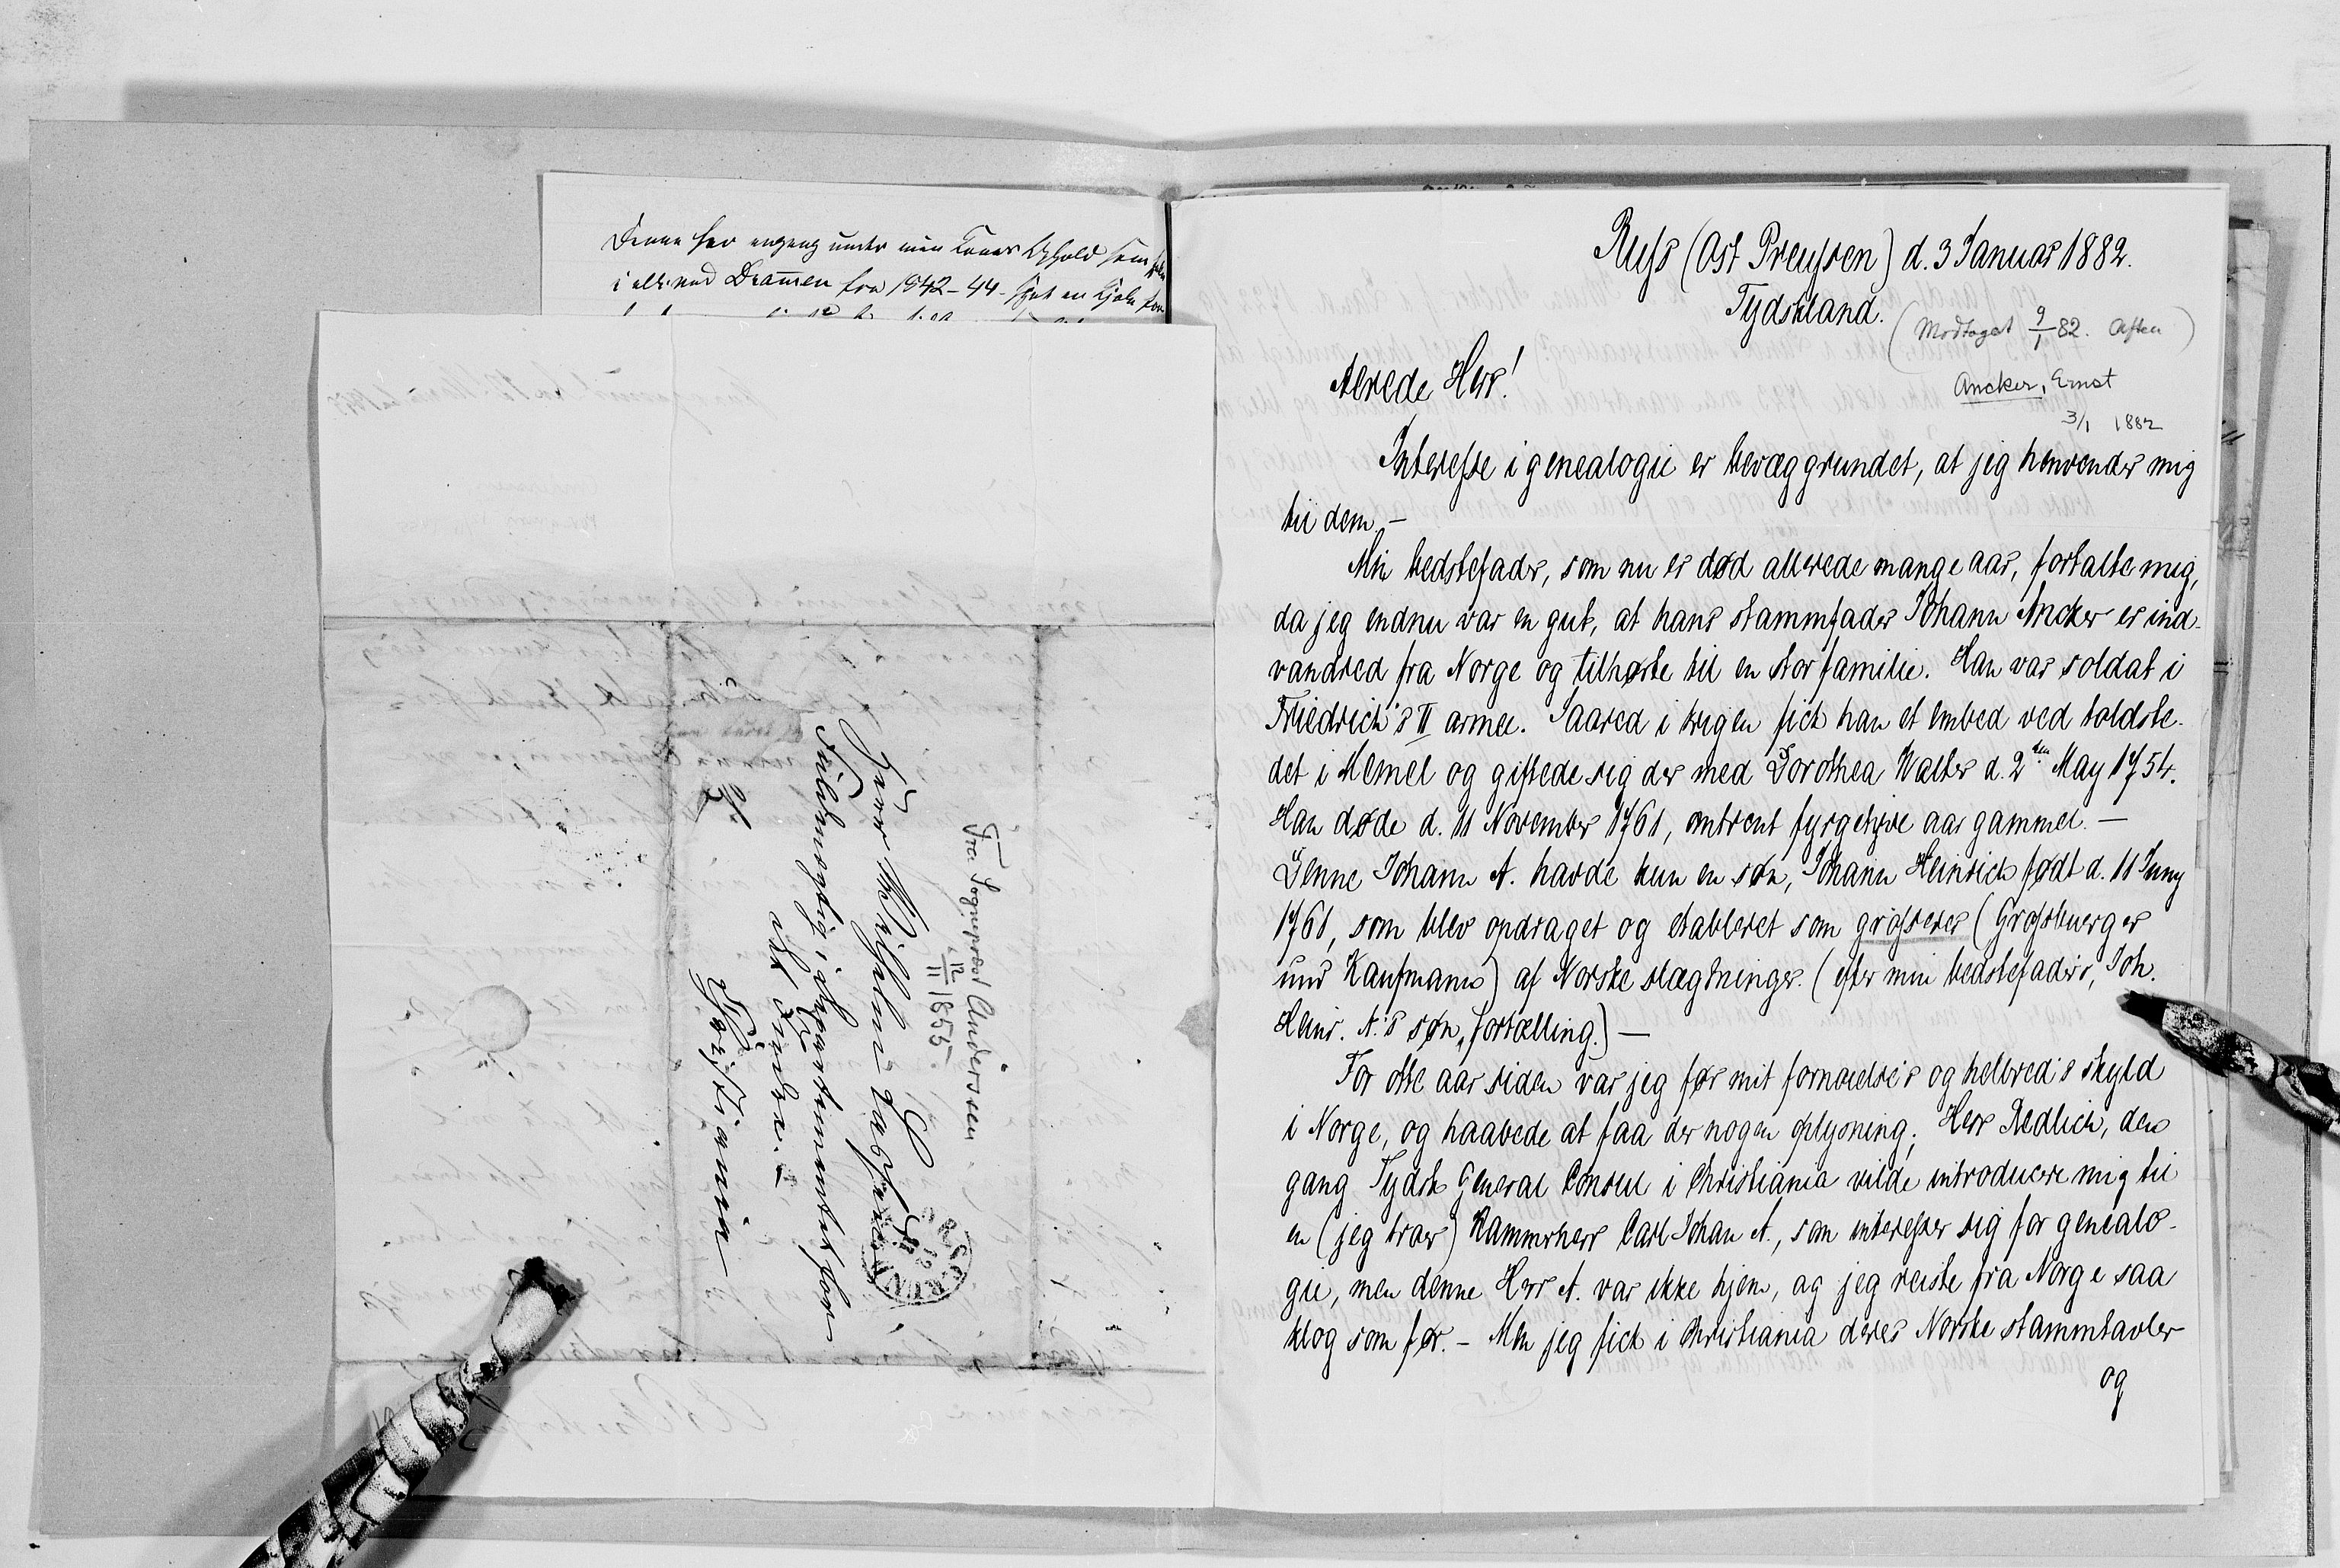 Denne har engang under min Tones Ophold
i eller ved Drammen fra 1842-44-
Herr Wilhelm Lassen
Fuldmægtig i departementet for
det Indre.
Christiania
Fra Sogneprest Anderssen
12/11 1855
Russ (Ost Preussen) d. 3 Januar 1882.
Tydskland.
(Modtaget 9/1 82. Aften)
Ancker, Ernst
3/1 1882
Aerede Herr!
Interesse i genealogie er bevæggrundet, at jeg henvender mig
til dem. –
Min bedstefader, som nu er død allerede mange aar, fortalte mig,
da jeg endnu var en gut, at hans stammfader Johann Ancker er ind-
vandred fra Norge og tilhørte til en stor familie. Han var soldat i
Friedrich's II armee. Saared i krigen fick han et embed ved toldste-
det i Memel og giftede sig der med Dorothea Walter d. 2ten May 1754.
Han døde d. 11 November 1761, omtrent fyrgetyve aar gammel. –
Denne Johann A. havde kun en søn, Johann Heinrich født d. 11 Juny
1761, som blev opdraget og etableret som grosserer (Grossbuerger
und Kaufmann) af Norske slægtninger. (efter min bedstefader's, Joh.
Heinr. A.'s søn, fortælling.) –
For otte aar siden var jeg før mit fornoielse's og helbred's skyld
i Norge, og haabede at faa der nogen oplysning; Herr Redlich, den
gang Tydsk General Consul i Christiania vilde introducere mig til
en (jeg troer) Kammerherr Carl Johan A., som interesser sig for genealo-
gie, men denne Herr A. var ikke hjem, og jeg reiste fra Norge saa
klog som før. – Men jeg fick i Christiania deres Norske stammtavler
og